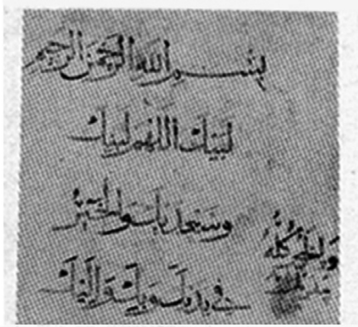 بسم الله الرحمن الرحيم
لبيك اللهم لبيك
وسعديك والخير
في يديك وبك وإليك